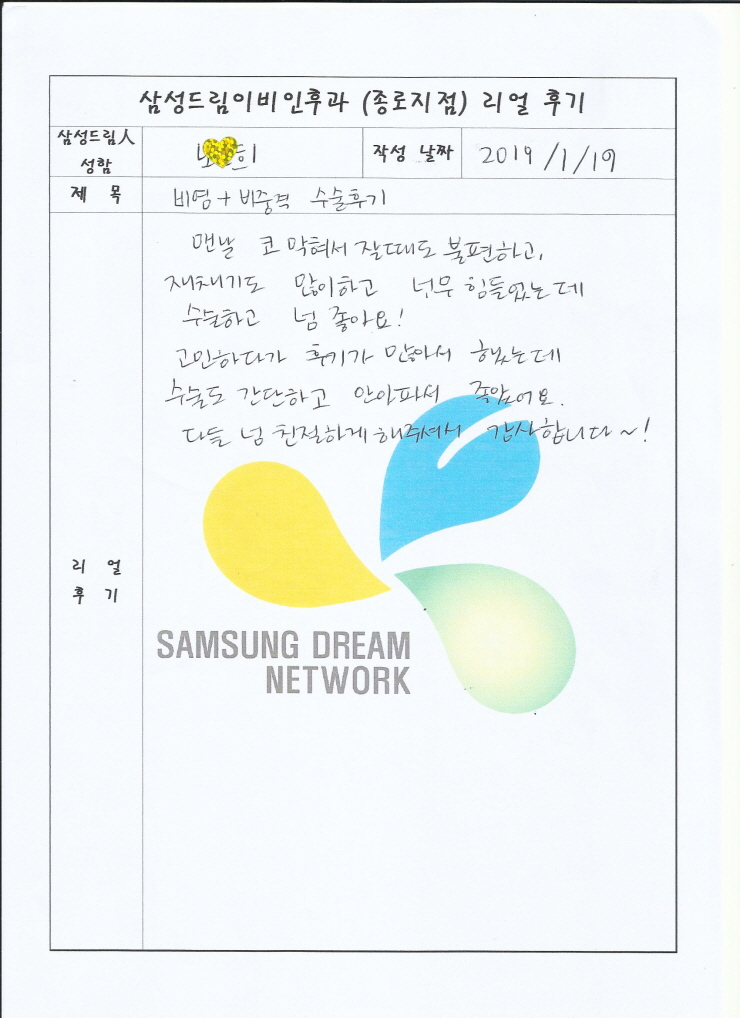 삼성드림이비인후과 (종로지점) 리얼 후기
삼성드림人
성함
희
작성 날짜
2019/1/19
제 목
비염+비중격 수술후기
맨날 코 막혀서 잘때도 불편하고,
재채기도 많이하고 너무 힘들었는데
수술하고 넘 좋아요!
고민하다가 후기가 많아서 했는데
수술도 간단하고 안아파서 좋았어요.
다들 넘 친절하게 해주셔서 감사합니다~!
리 얼
후 기
SAMSUNG DREAM
NETWORK